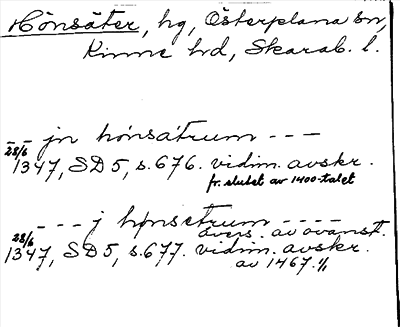 Hönsäter, hg, Österplana sn,
Kinne hd, Skarab. l.
- - jn hønsátrum - - -
28/6 1347, SD 5, s. 676. vidim. avskr.
fr. slutet av 1400-talet
- - - j hønsetrum - - - -
övers. av ovanst.
28/6 1347, SD 5, s. 677. vidim. avskr.
av 1467. 1/1